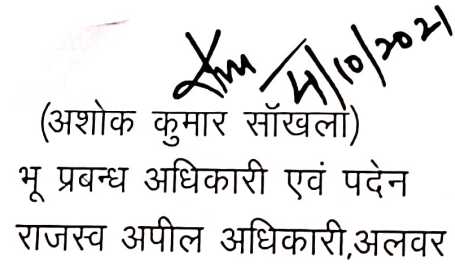 4/10/2021
(अशोक कुमार सॉखला)
भू प्रबन्ध अधिकारी एवं पदेन
राजस्व अपील अधिकारी,अलवर